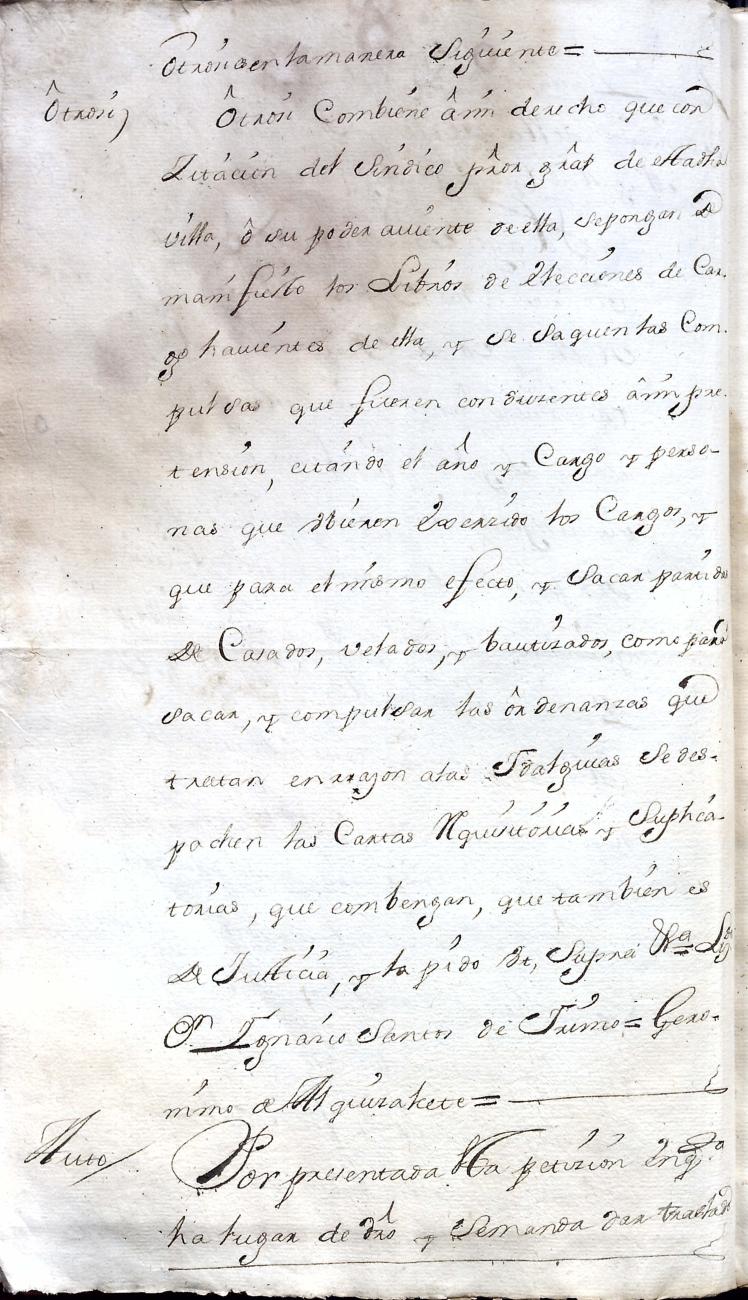 Otrosi en la manera Siguiente =
Ôtrosi,
Ôtrosi Combiene âmi derecho que con
Zitación del Síndico prôr grâl de
villa, ô su poder aviente de ella, sepongan de
manifiesto los Libros de Elecciones de Car.
gohavientes de ella, y se saquen las Com.
pulsas que fueren conduzentes âmi pre.
tensión, citándo el año y Cargo y perso-
nas que ubieren Exerzido los Cargos, y
que para el mismo efecto, y sacar partidas
de Casados, velados, y bautizados, como para
sacar, y compulsar las ôrdenanzas que
tratan enrrazon alas Idalguias Se des-
pachen las Cartas Rquisitórias y Suplica-
torias, que combengan, que también es
de Justicia, y la pido Ut, Supra
Dn Ignazio Santos de = Gero-
nimo de Alguizalete =
Auto
Por presentada petizión
ha lugar de dro y Semanda dar traslado